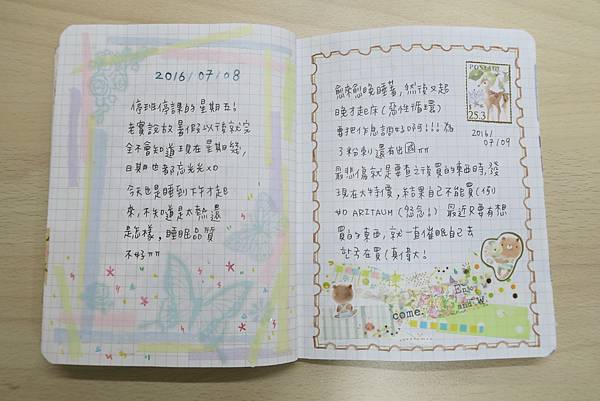 2016/07/08
停班停課的星期五!
老實說放暑假以後就完
全不會知道現在星期幾,
日期也都忘光光xD
今天也是睡到下午才起
來,不知道是太熱還
是怎樣,睡眠品質
不好ππ
POSTAGE
25.3
2016/
07/09
愈來愈晚睡著,然後又起
晚才起床(惡性循環)
要把作息調好啊!!!為
了粉刺還有出國ππ
最悲傷就是要查之後買的東西時,發
現在大特價,結果自己不能買(例
如 ARITAUM (怨念!) 最近只要有想
買的東西,就一直催眠自己去
韓國在買(真偉大!
Enjoy
and W
come.